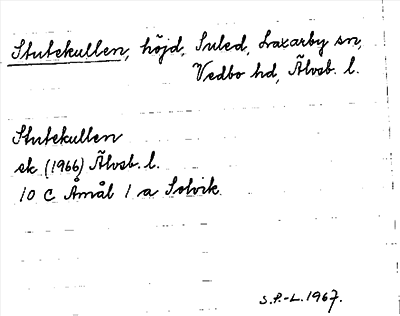 Stutekullen, höjd, Suled, Laxarby sn,
Vedbo hd, Älvsb. l.
Stutekullen
ek (1966) Älvsb. l.
10 C Åmål 1 a Solvik
S.P.-L. 1967.